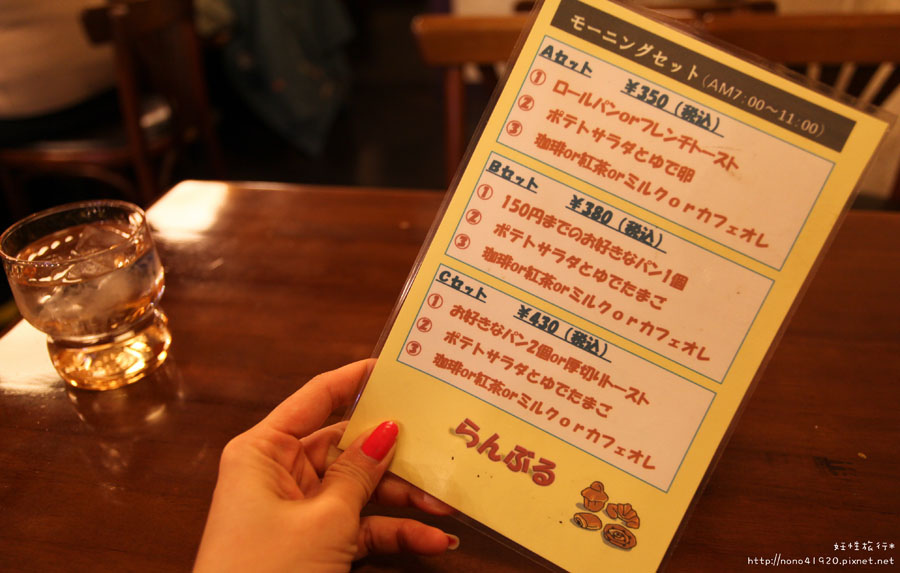 モーニングセット(AM7:00～11:00)
Aセット ¥350(税込)
① ロールパンorフレンチトースト
② ポテトサラダとゆで卵
③ 珈琲or紅茶orミルクorカフェオレ
Bセット ¥380(税込)
① 150円までのお好きなパン1個
② ポテトサラダとゆでたまご
③ 珈琲or紅茶orミルクorカフェオレ
Cセット ¥430(税込)
① お好きなパン2個or厚切りトースト
② ポテトサラダとゆでたまご
③ 珈琲or紅茶orミルクorカフェオレ
らんぶる
妊性旅行*
http://nono41920.pixnet.net